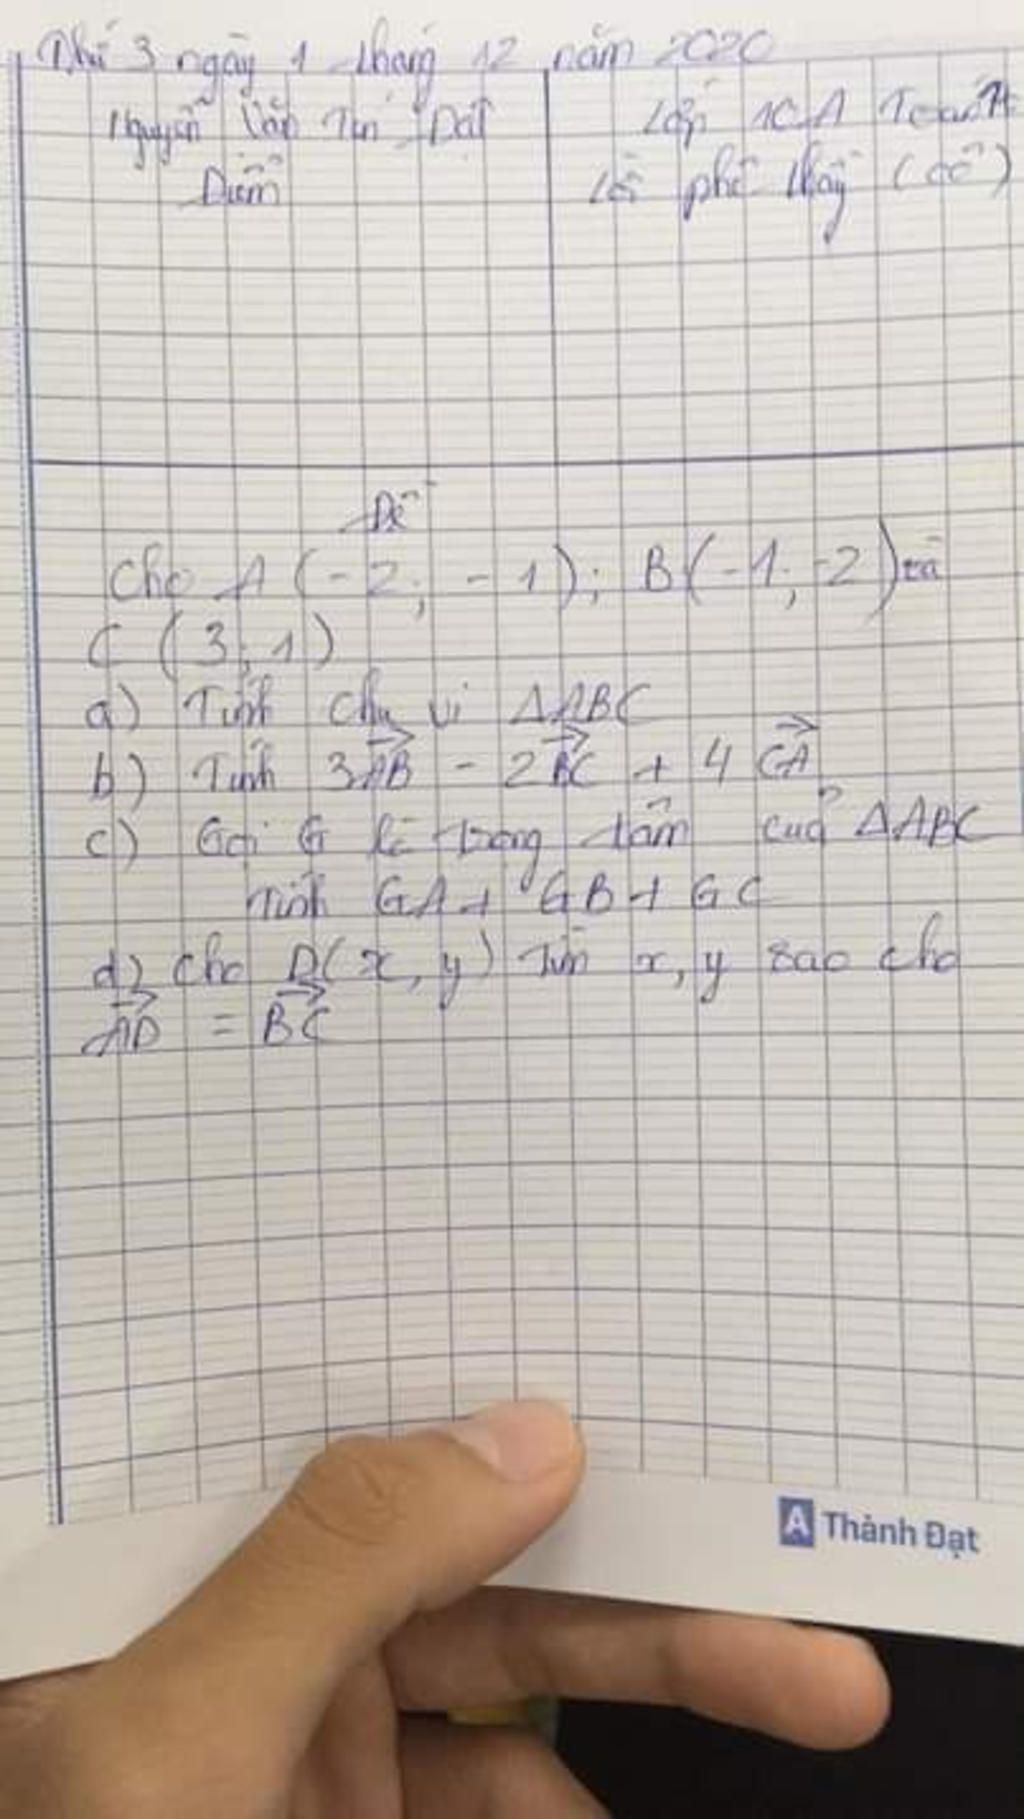 Thứ 3 ngày 1 tháng 12 năm 2020
Nguyễn Văn Tiến Đạt
Điểm
Lớp 10A Toán
Lời phê thầy (cô)
Đề
Cho A (-2; -1); B(-1; -2) và
C (3; 1)
a) Tính chu vi ΔABC
b) Tính 3AB - 2BC + 4 CA
c) Gọi G là trọng tâm của ΔABC
Tính GA + GB + GC
d) Cho D(x, y) Tìm x, y sao cho
AD = BC
A Thành Đạt